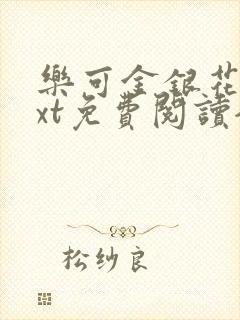 樂可金銀花
xt免費閱讀
松纱良